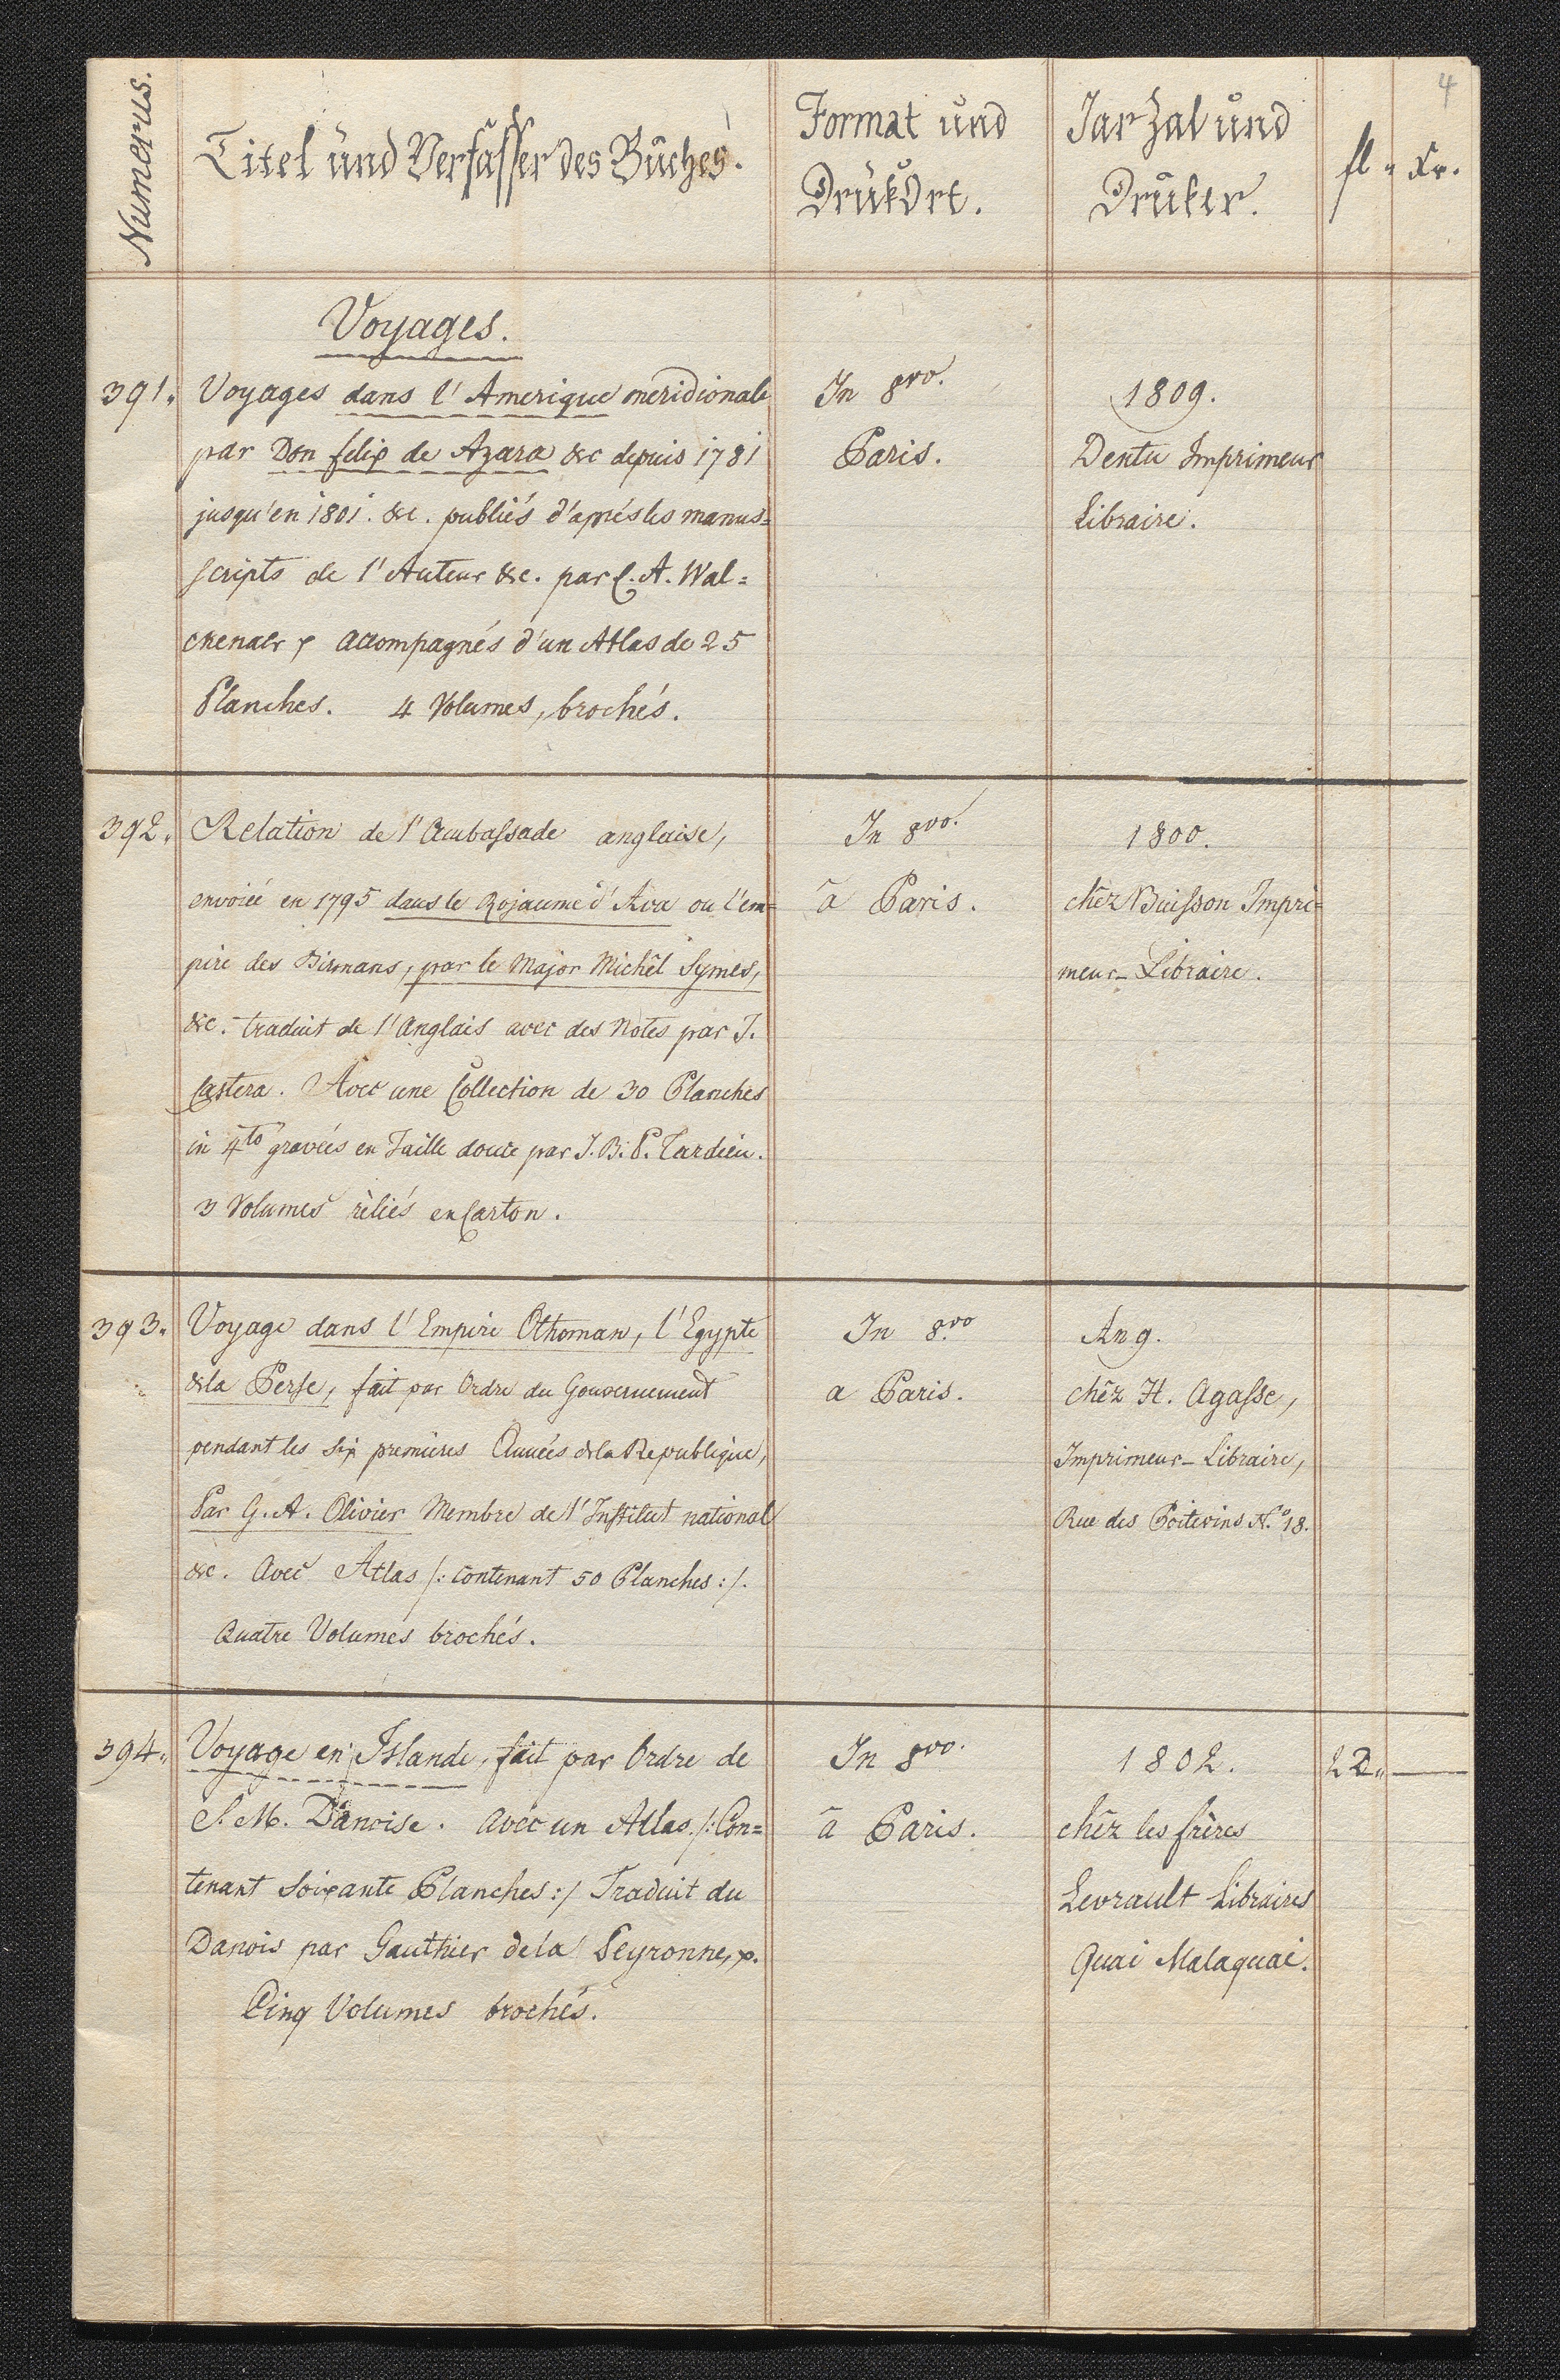 4
Numerus.
Titel und Verfasser des Buches.
Format und
Drukort.
Jarzal und
Druker.
fl „ Xr.
Voyages.
391. Voyages dans l'Amerique meridionale
par Don felix de Azara &c depuis 1781
jusqu'en 1801. &c. publiés d'après les manus=
scripts de l'Auteur &c. par C. A. Wal=
ckenaer, accompagnés d'un Atlas de 25
Planches. 4 Volumes, brochés.
In 8vo.
Paris.
1809.
Dentu Imprimeur
Libraire.
392. Relation de l'Ambassade anglaise,
envoiée en 1795 dans le Rojaume d'Ava ou l'em=
pire des Birmans, par le Major Michêl Symes,
&c. traduit de l'Anglais avec des Notes par J.
Castera. Avec une Collection de 30 Planches
in 4to gravées en Taille douce par J. B. P. Tardieu.
3 Volumes rèliés en Carton.
In 8vo.
â Paris.
1800.
chêz Buisson Impri=
meur-Libraire.
393. Voyage dans l'Empire Othoman, l'Egypte
&la Perse, fait par Ordre du Gouvernement
pendant les Six premières Années dela Republique,
Par G. A. Olivier Membre de l'Institut national
&c. Avec Atlas /: contenant 50 Planches :/.
Quatre Volumes brochés.
In 8.vo
a Paris.
An 9.
chêz H. Agasse,
Imprimeur-Libraire,
Rue des Poitevins N.o 18.
394. Voyage en Islande, fait par Ordre de
S. M. Danoise. Avéc un Atlas. /: Con=
tenant Soixante Planches :/ Traduit du
Danois par Gauthier dela Peyronne,
Cinq Volumes brochés.
In 8vo.
â Paris.
1802.
chêz les frères
Levrault Libraires
Quai Malaquai.
22 „ —